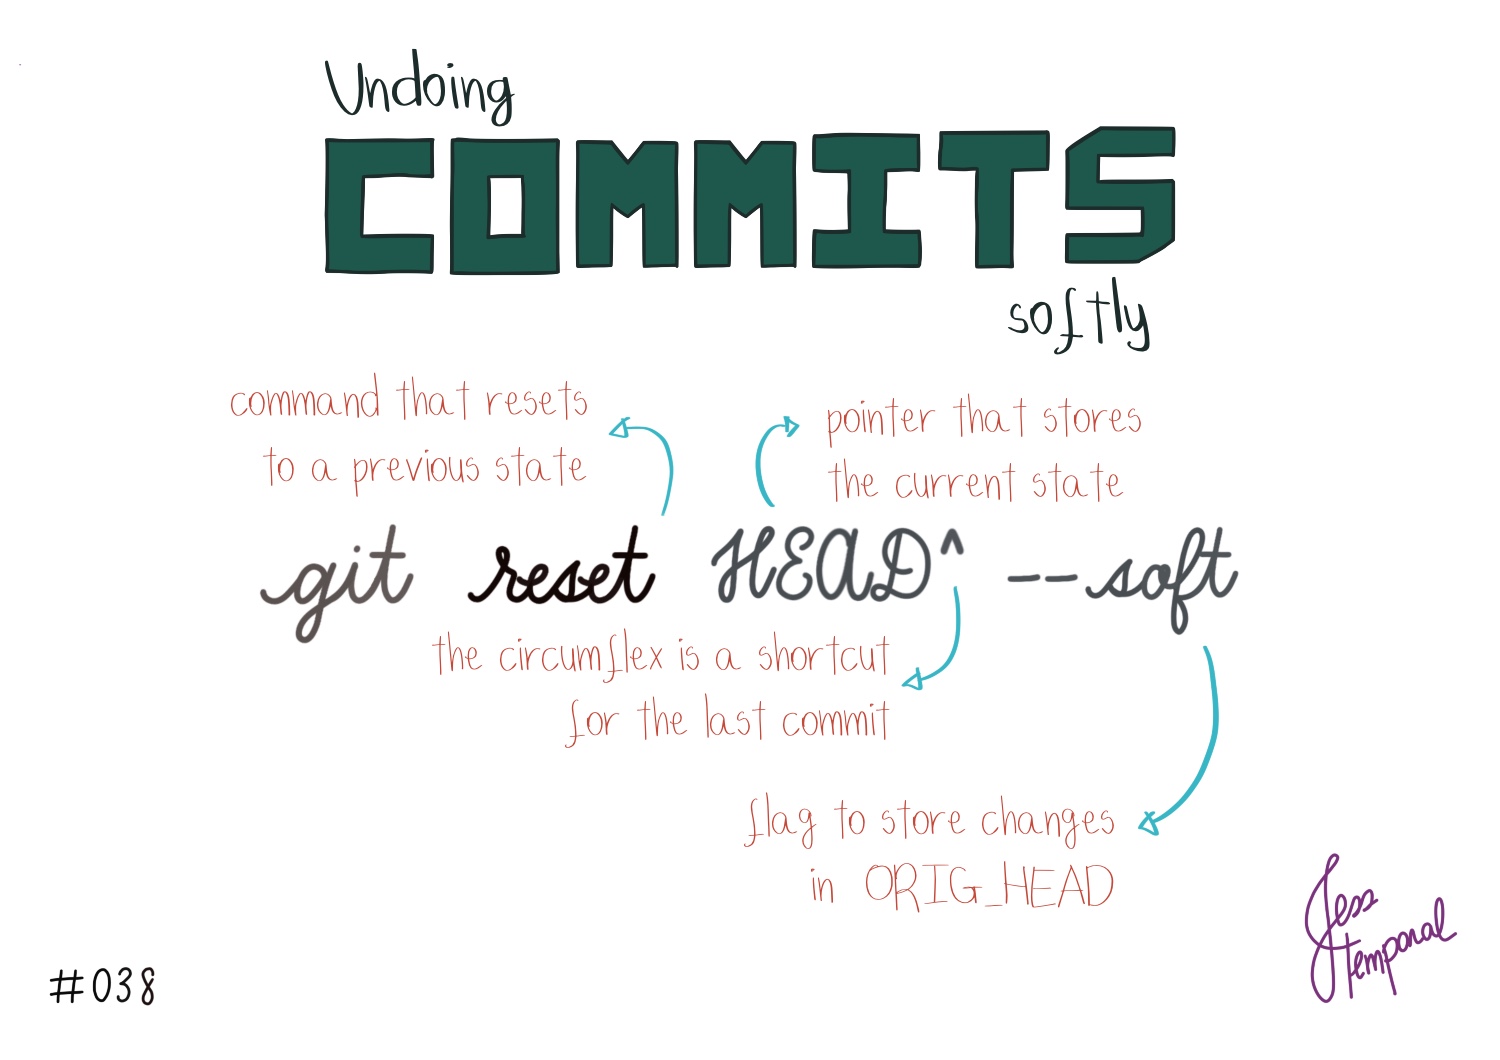 Undoing
COMMITS
softly
command that resets
to a previous state
pointer that stores
the current state
git reset HEAD^ --soft
the circumflex is a shortcut
for the last commit
flag to store changes
in ORIG_HEAD
Jess
temporal
#038